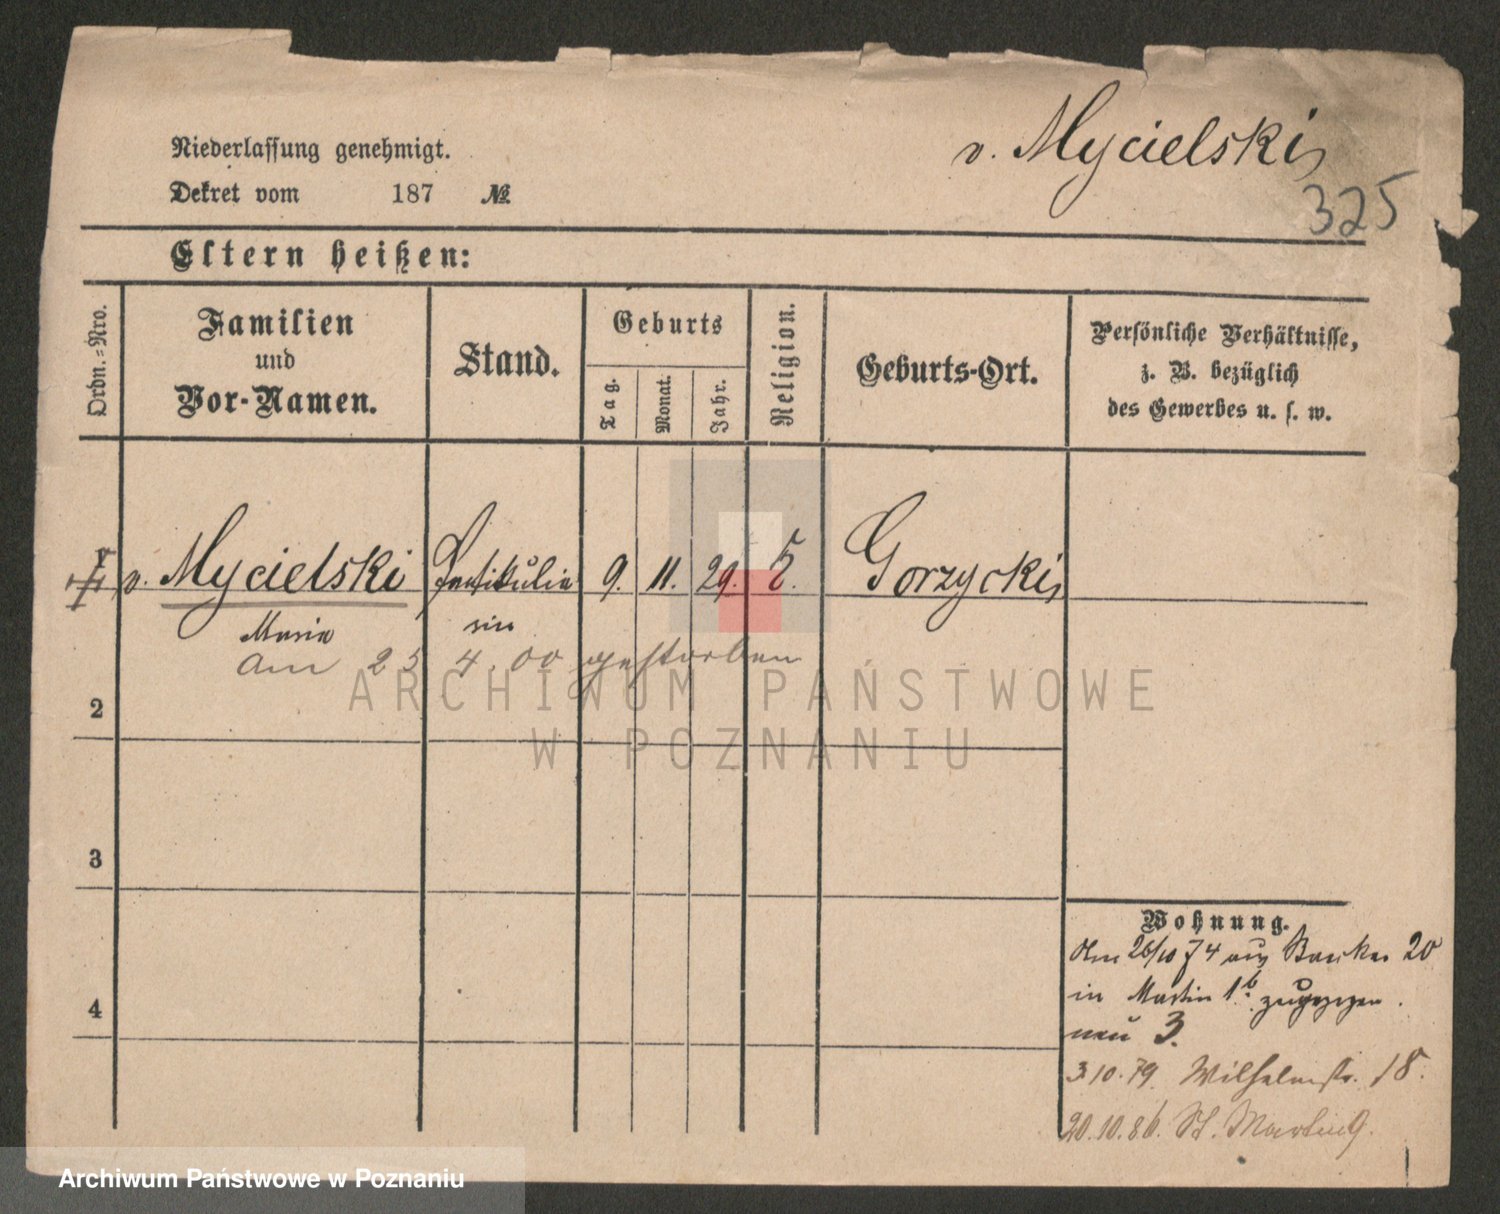 v. Mycielski,
325
Niederlassung genehmigt.
Dekret vom 187 №
Eltern heißen:
Ordn.-Nro.
Familien
und
Vor-Namen.
Stand.
Geburts
Tag.
Monat.
Jahr.
Religion.
Geburts-Ort.
Persönliche Verhältnisse,
z. B. bezüglich
des Gewerbes u. s. w.
v. Mycielski Partikulie 9. 11. 29. Gorzycki,
Maria rin
am 25 4. 00 gestorben
2
3
4
Wohnung.
Am 26/10 74 aus 20
in Martin 1b. zugezogen.
neu 3.
3.10.79. Wilhelmstr. 18.
20.10.86. St. Martin 9.
ARCHIWUM PAŃSTWOWE
W POZNANIU
Archiwum Państwowe w Poznaniu